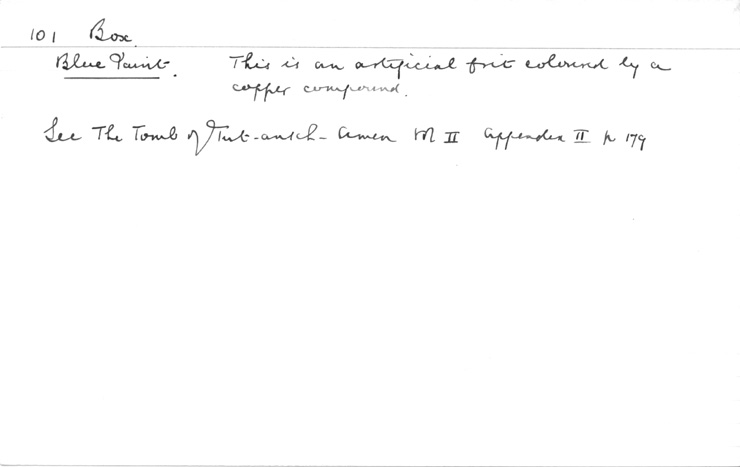 101 Box
Blue Paint. This is an artificial frit coloured by a
copper compound.
See The Tomb of Tut-ankh-Amen Vol II Appendix II p 179